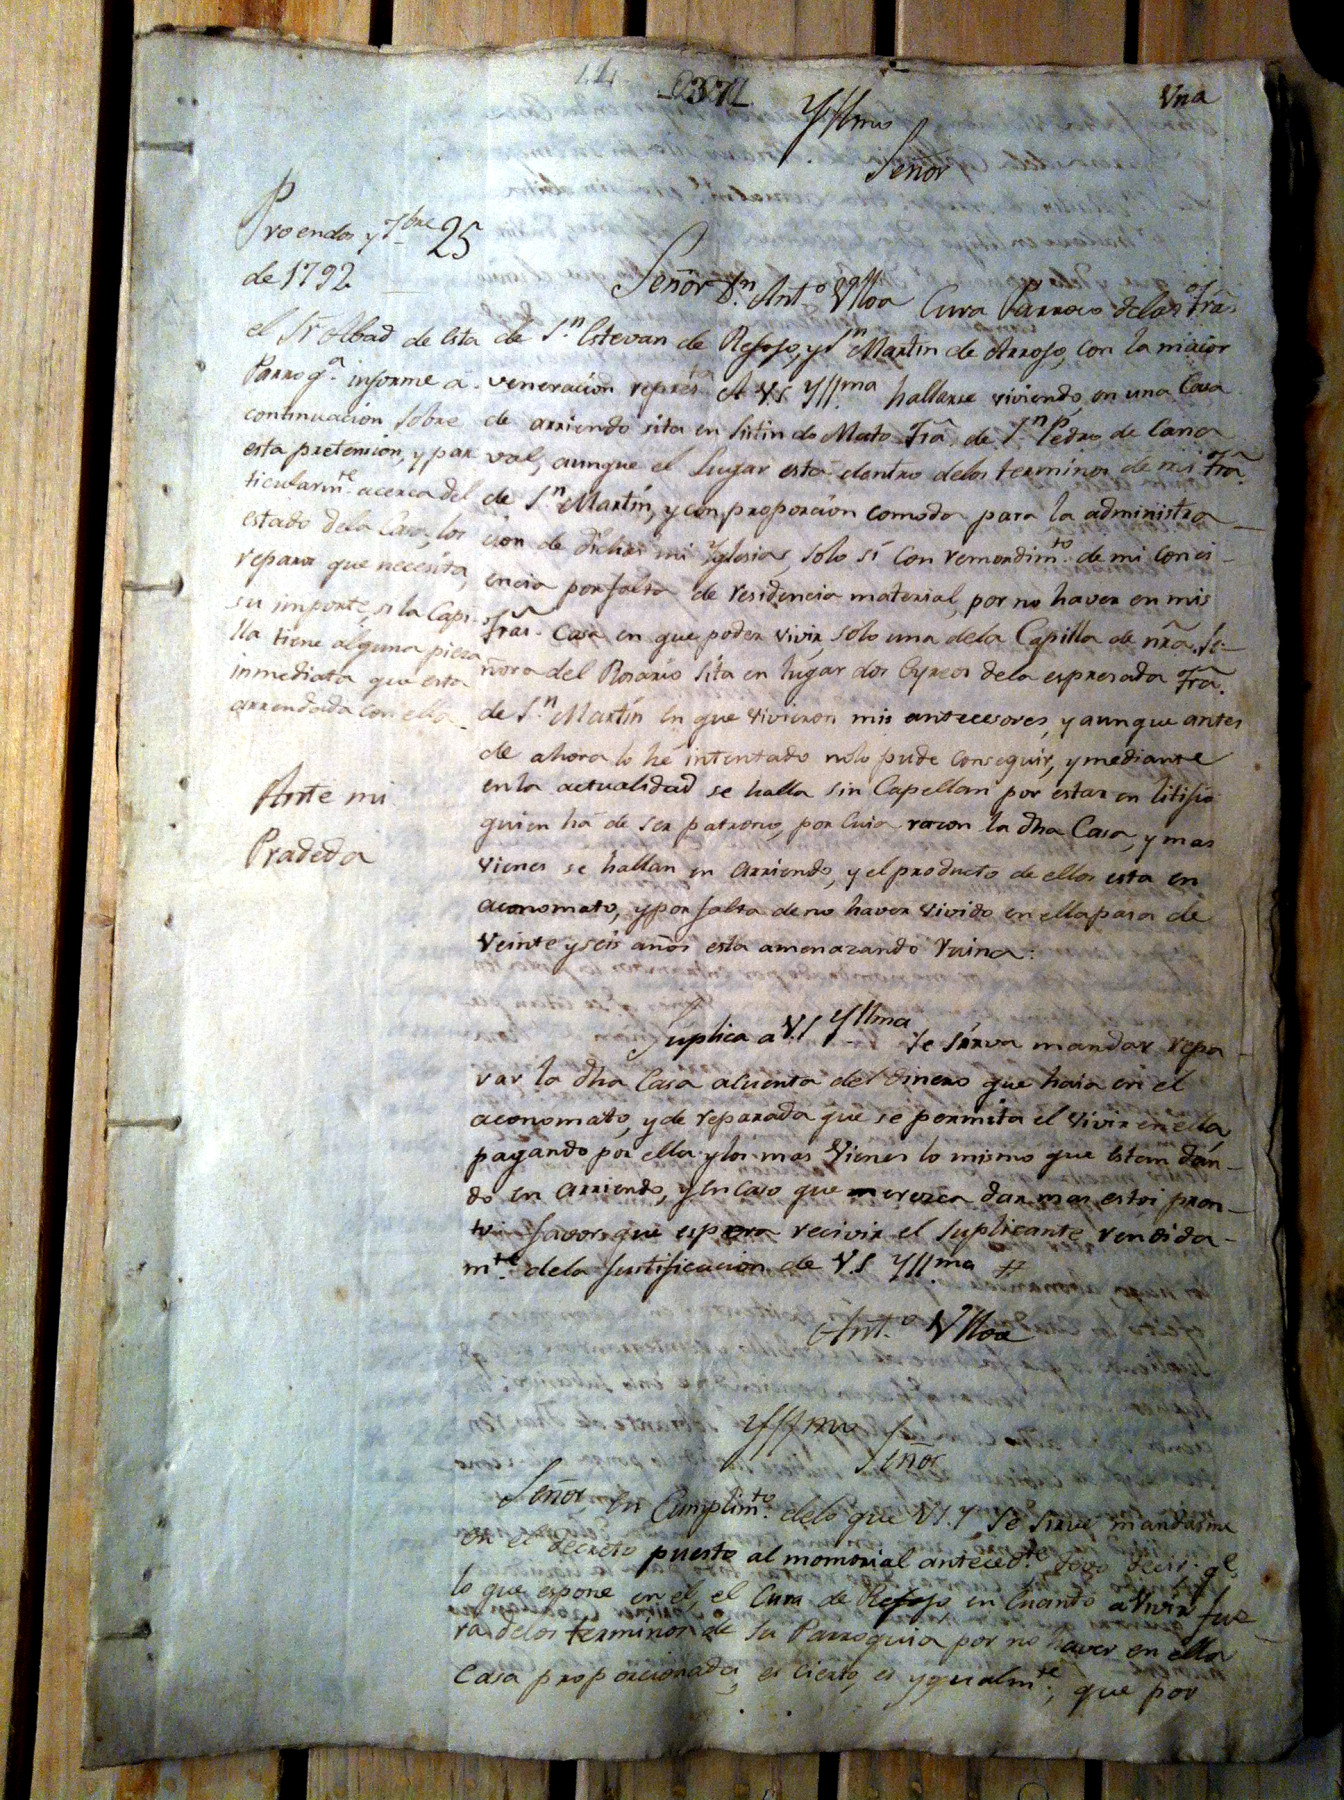 Vna
Yllmo
Señor
Proendos y 7bre 25
de 1792
el Sr Abad de esta
Parroqª informe a
continuacion sobre
esta pretension, y par
ticularmte acerca del
estado dela Casa, los
reparos que necesita,
su importe, si la Capi-
lla tiene alguna pieza
inmediata que esta
arrendada con ella
Ante mi
Pradeda
Señor Dn Anto Vlloa Cura Parroco delas Fras
de Sn Estevan de Refojo, y Sn Martin de Arrojo, con la maior
veneracion represta A VS Yllma hallarse viviendo, en una Casa
de arriendo sita en Sitin do Mato Fra de Sn Pedro de Cana
val, aunque el Lugar esta dentro delos terminos de mi Fra
de Sn Martin, y con proporcion comoda para la administra
cion de dichas mi Yglesias, solo sí con remordimto de mi conci-
encia por falta de residencia material, por no haver en mis
Fras Casa en que poder vivir, solo una dela Capilla de nra Se-
ñora del Rosario sita en lugar dos Eyreos dela espresada Fra
de Sn Martin en que vivieron mis antecesores, y aunque antes
de ahora lo hé intentado nolo pude conseguir, y mediante
enla actualidad se halla sin Capellan por estar en litisio
quien há de ser patrono, por cuia razon la dha Casa, y mas
vienes se hallan en arriendo, y el producto de ellos esta en
aconomato, y por falta de no haver vivido en ella pasa de
veinte y seis años esta amenazando ruina:
Suplica a V.S Yllma Se sirva mandar repa-
rar la dha Casa acuenta del dinero que haia en el
aconomato, y de reparada que se permita el vivir en ella,
pagando por ella y los mas vienes lo mismo que estan dan-
do en arriendo, y en caso que merezca dar mas estoi pron-
to favor que espera recivir el suplicante rendida-
mte dela Justificacion de V.S Yllma #
Anto Vlloa
Yllmo
Señor
Señor, en Cumplimto delo que VS.Y se sirve mandarme
en el decreto puesto al memorial antecedte devo decir, qe
lo que espone en el, el Cura de Refojo, en Cuanto a vivir fue
ra delos terminos de su Parroquia por no haver en ella
Casa proporcionada, es cierto, es ygualmte, que por